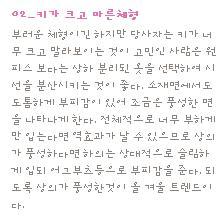 02_키가 크고 마른체형
부러운 체형이긴 하지만 당사자는 키가 너
무 크고 말라보이는 것이 고민인 사람은 원
피스 보다는 상하 분리된 옷을 선택하여 시
선을 분산시키는 것이 좋다. 소재면에서도
도톰하게 부피감이 있어 조금은 풍성한 면
을 나타나게 한다. 전체적으로 너무 부하게
만 입는다면 역효과가 날 수 있으므로 상의
가 풍성하다면 하의는 상대적으로 슬림하
게 입되 어그부츠등으로 부피감을 준다. 되
도록 상의가 풍성한것이 올 겨울 트렌드이
다.